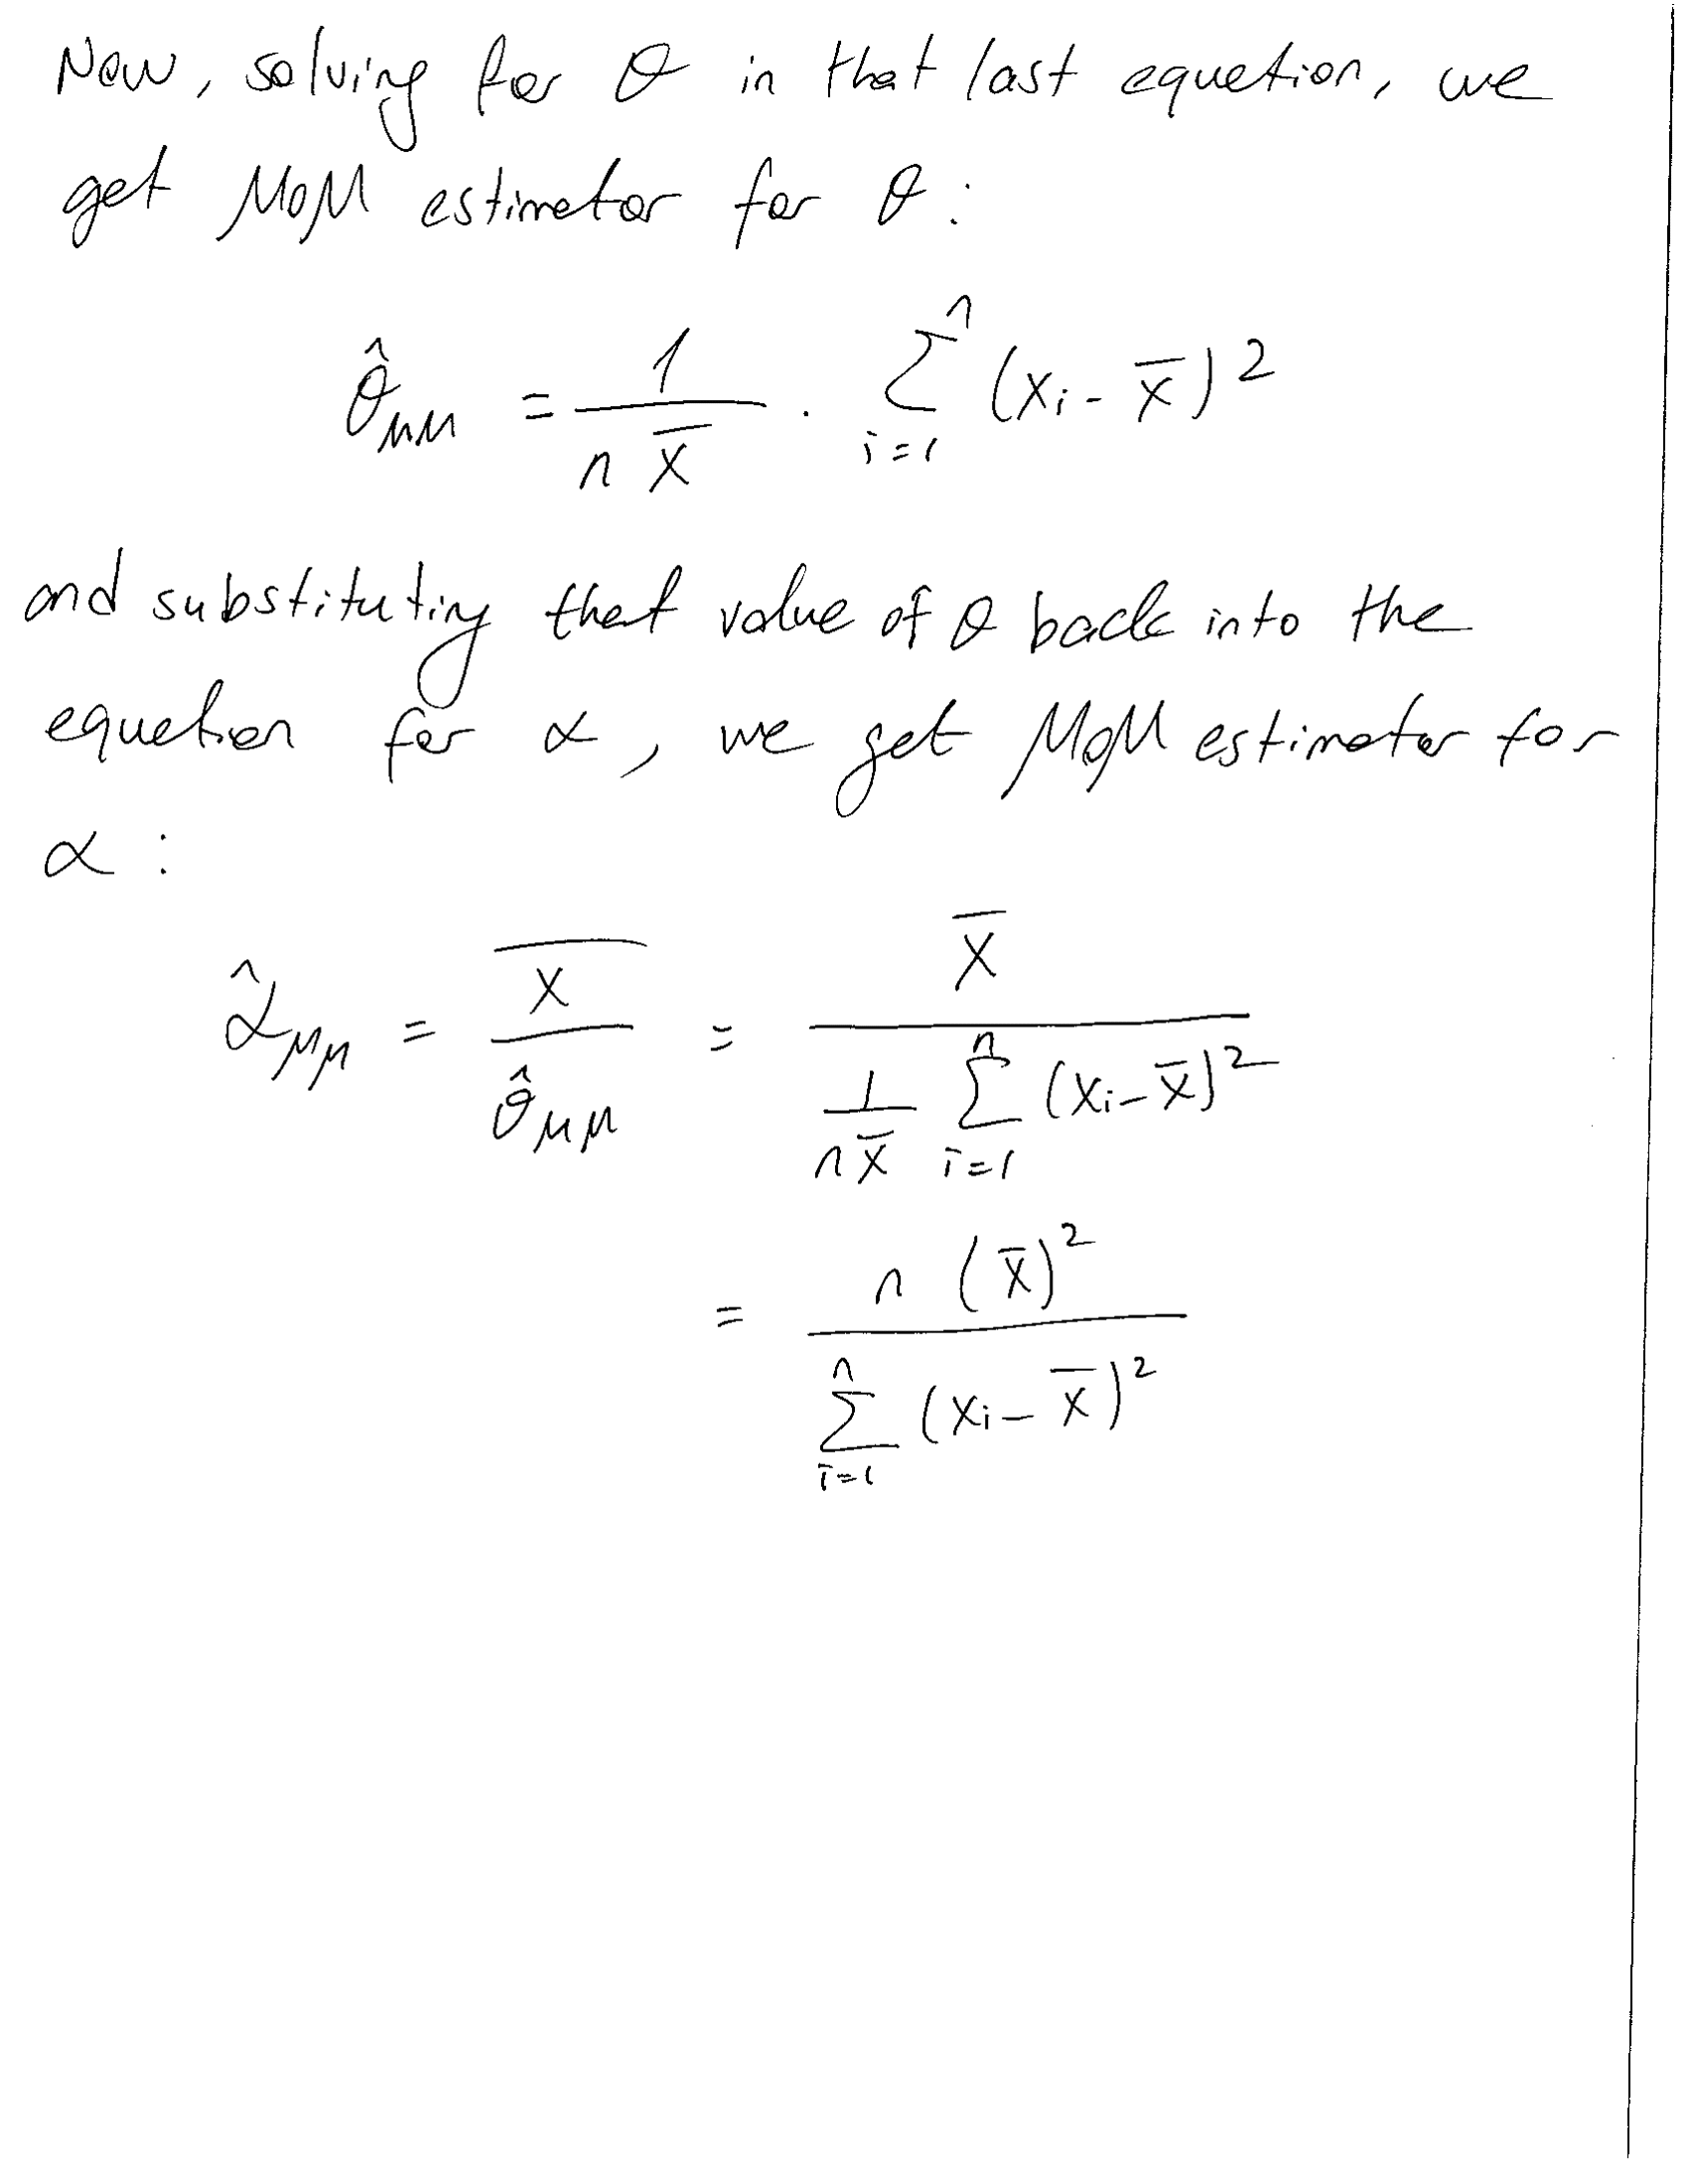 Now, solving for θ in that last equation, we
get MoM estimator for θ:
θ̂_MM = 1 / (n X̄) · ∑_{i=1}^{n} (X_i - X̄)²
and substituting that value of θ back into the
equation for α, we get MoM estimator for
α:
α̂_MM = X̄ / θ̂_MM = X̄ / ( 1/(n X̄) ∑_{i=1}^{n} (X_i - X̄)² )
= n (X̄)² / ∑_{i=1}^{n} (X_i - X̄)²